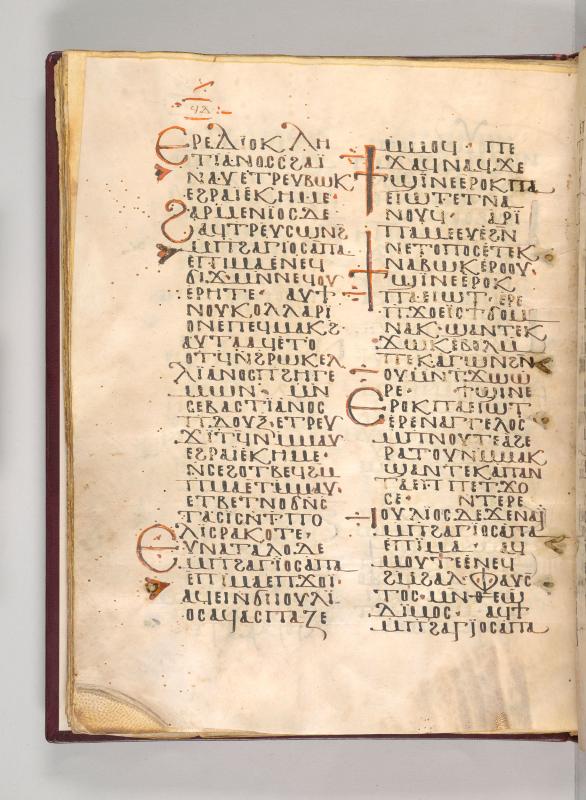 ϥⲇ
ⲉⲣⲉⲇⲓⲟⲕⲗⲏ
ⲧⲓⲁⲛⲟⲥⲥϩⲁⲓ̈
ⲛⲁⲩⲉⲧⲣⲉⲩⲃⲱⲕ
ⲉϩⲣⲁⲓ̈ⲉⲕⲏⲙⲉ·
ϩⲁⲣⲙⲉⲛⲓⲟⲥ·ⲇⲉ
ⲁϥⲧⲣⲉⲩⲥⲱⲛϩ
ⲙⲡϩⲁⲅⲓⲟⲥⲁⲡⲁ
ⲉⲡⲓⲙⲁⲉⲛⲉϥ
ϭⲓϫ·ⲙⲛⲛⲉϥⲟⲩ
ⲉⲣⲏⲧⲉ· ⲁⲩϯ
ⲛⲟⲩⲕⲟⲗⲗⲁⲣⲓ
ⲟⲛⲉⲡⲉϥⲙⲁⲕϩ·
ⲁⲩⲧⲁⲁϥⲉⲧⲟ
ⲟⲧϥⲛϩⲣⲱⲕⲉⲗ
ⲗⲓⲁⲛⲟⲥⲡϩⲏⲅⲉ
ⲙⲱⲛ· ⲙⲛ
ⲥⲉⲃⲁⲥⲧⲓⲁⲛⲟⲥ
ⲡⲇⲟⲩⲝ·ⲉⲧⲣⲉⲩ
ϫⲓⲧϥⲙⲙⲁⲩ
ⲉϩⲣⲁⲓ̈ⲉⲕⲏⲙⲉ·
ⲛⲥⲉϩⲟⲧⲃⲉϥϩⲙ
ⲡⲙⲁⲉⲧⲙⲙⲁⲩ·
ⲉⲧⲃⲉⲧⲛⲟϭⲛⲥ
ⲧⲁⲥⲓⲥⲛⲧⲡⲟ
ⲗⲓⲥⲣⲁⲕⲟⲧⲉ·
ⲉⲩⲛⲁⲧⲁⲗⲟ·ⲇⲉ
ⲙⲡϩⲁⲅⲓⲟⲥⲁⲡⲁ
ⲉⲡⲓⲙⲁⲉⲡϫⲟⲓ·
ⲁϥⲉⲓⲛϭⲓⲓⲟⲩⲗⲓ
ⲟⲥⲁϥⲁⲥⲡⲁⲍⲉ
ⲙⲙⲟϥ· ⲡⲉ
ϫⲁϥⲛⲁϥ·ϫⲉ
ϯϣⲓⲛⲉⲉⲣⲟⲕⲡⲁ
ⲉⲓⲱⲧⲉⲧⲛⲁ
ⲛⲟⲩϥ· ⲁⲣⲓ
ⲡⲁⲙⲉⲉⲩⲉϩⲛ
ⲛⲉⲧⲟⲡⲟⲥⲉⲧⲉⲕ
ⲛⲁⲃⲱⲕⲉⲣⲟⲟⲩ·
ϯϣⲓⲛⲉⲉⲣⲟⲕ
ⲡⲁⲉⲓⲱⲧ·ⲉⲣⲉ
ⲡϫⲟⲉⲓⲥϯϭⲟⲙ
ⲛⲁⲕ·ϣⲁⲛⲧⲉⲕ
ϫⲱⲕⲉⲃⲟⲗⲙ
ⲡⲉⲕⲁⲅⲱⲛϩⲛ
ⲟⲩⲙⲛⲧϫⲱⲱ
ⲣⲉ· ϯϣⲓⲛⲉ
ⲉⲣⲟⲕⲡⲁⲉⲓⲱⲧ
ⲉⲣⲉⲛⲁⲅⲅⲉⲗⲟⲥ
ⲙⲡⲛⲟⲩⲧⲉⲁϩⲉ
ⲣⲁⲧⲟⲩⲛⲙⲙⲁⲕ
ϣⲁⲛⲧⲉⲕⲁⲡⲁⲛ
ⲧⲁⲉⲡⲉⲧϫⲟ
ⲥⲉ· ⲛⲧⲉⲣⲉ
ⲓⲟⲩⲗⲓⲟⲥ·ⲇⲉϫⲉⲛⲁⲓ̈
ⲙⲡϩⲁⲅⲓⲟⲥⲁⲡⲁ
ⲉⲡⲓⲙⲁ· ⲁϥ
ⲙⲟⲩⲧⲉⲉⲛⲉϥ
ϩⲙϩⲁⲗ·ⲫⲁⲩⲥ
ⲧⲟⲥ·ⲙⲛ·ⲑⲉⲱ
ⲗⲓⲙⲟⲥ· ⲁϥϯ
ⲙⲡϩⲁⲅⲓⲟⲥⲁⲡⲁ